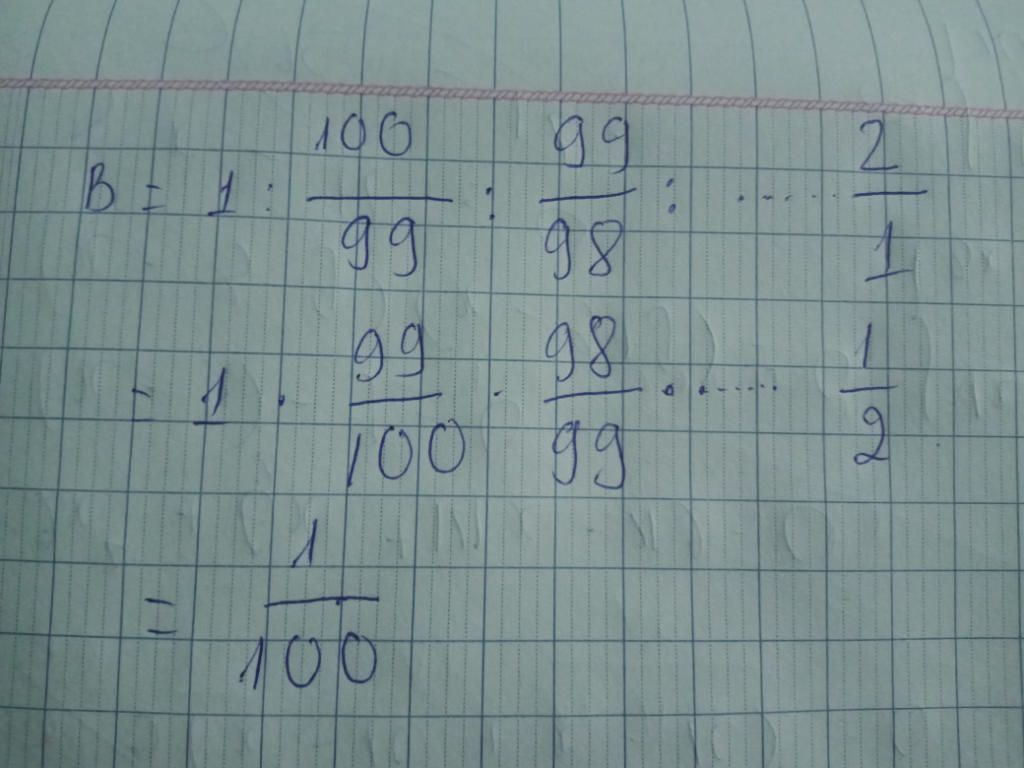 B = 1 : 100/99 : 99/98 : ....... 2/1
= 1 . 99/100 . 98/99 . ....... 1/2
= 1/100